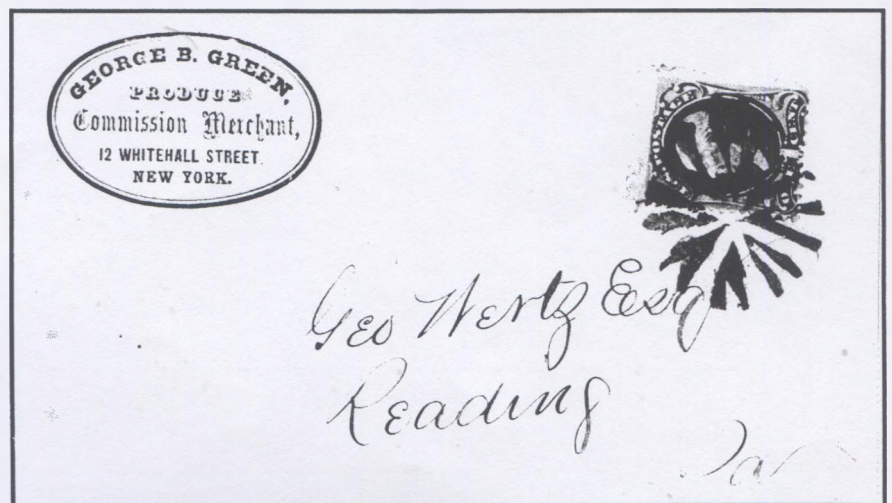 GEORGE B. GREEN,
PRODUCE
Commission Merchant,
12 WHITEHALL STREET.
NEW YORK.
POSTAGE
Geo Wertz Esq
Reading
Pa